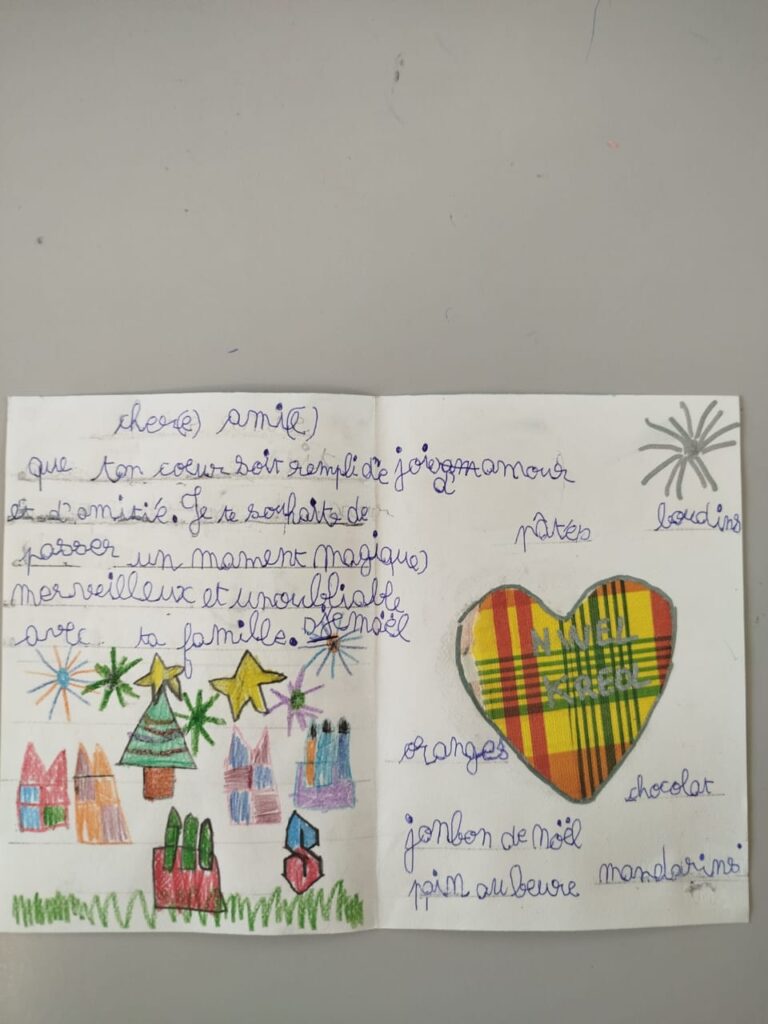 cher(e) ami(e)
que ton coeur soit rempli de joie amour
et d'amitié. Je te souhaite de
passer un mament magique,
merveilleux et unoubliable
avec ta famille.
pâtés
boudins
NWEL
KREOL
oranges
chocolat
jonbon de noël
pin au beure
mandarins